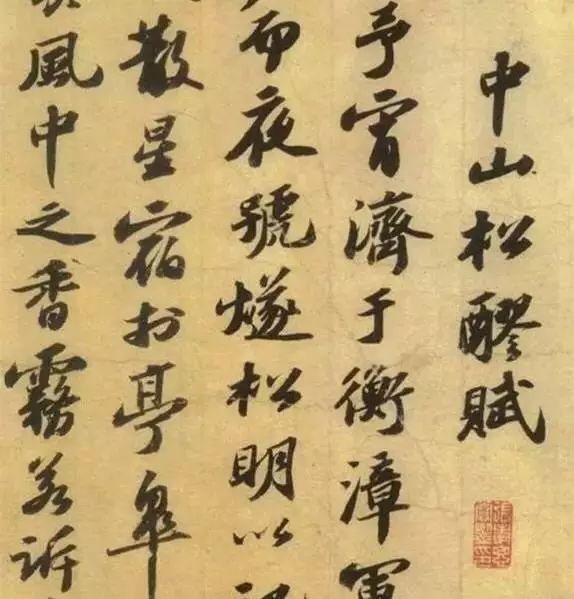 中山松醪賦
予宵濟于衡漳軍
而夜號燧松明以
散星宿於亭皋
風中之香霧若訴